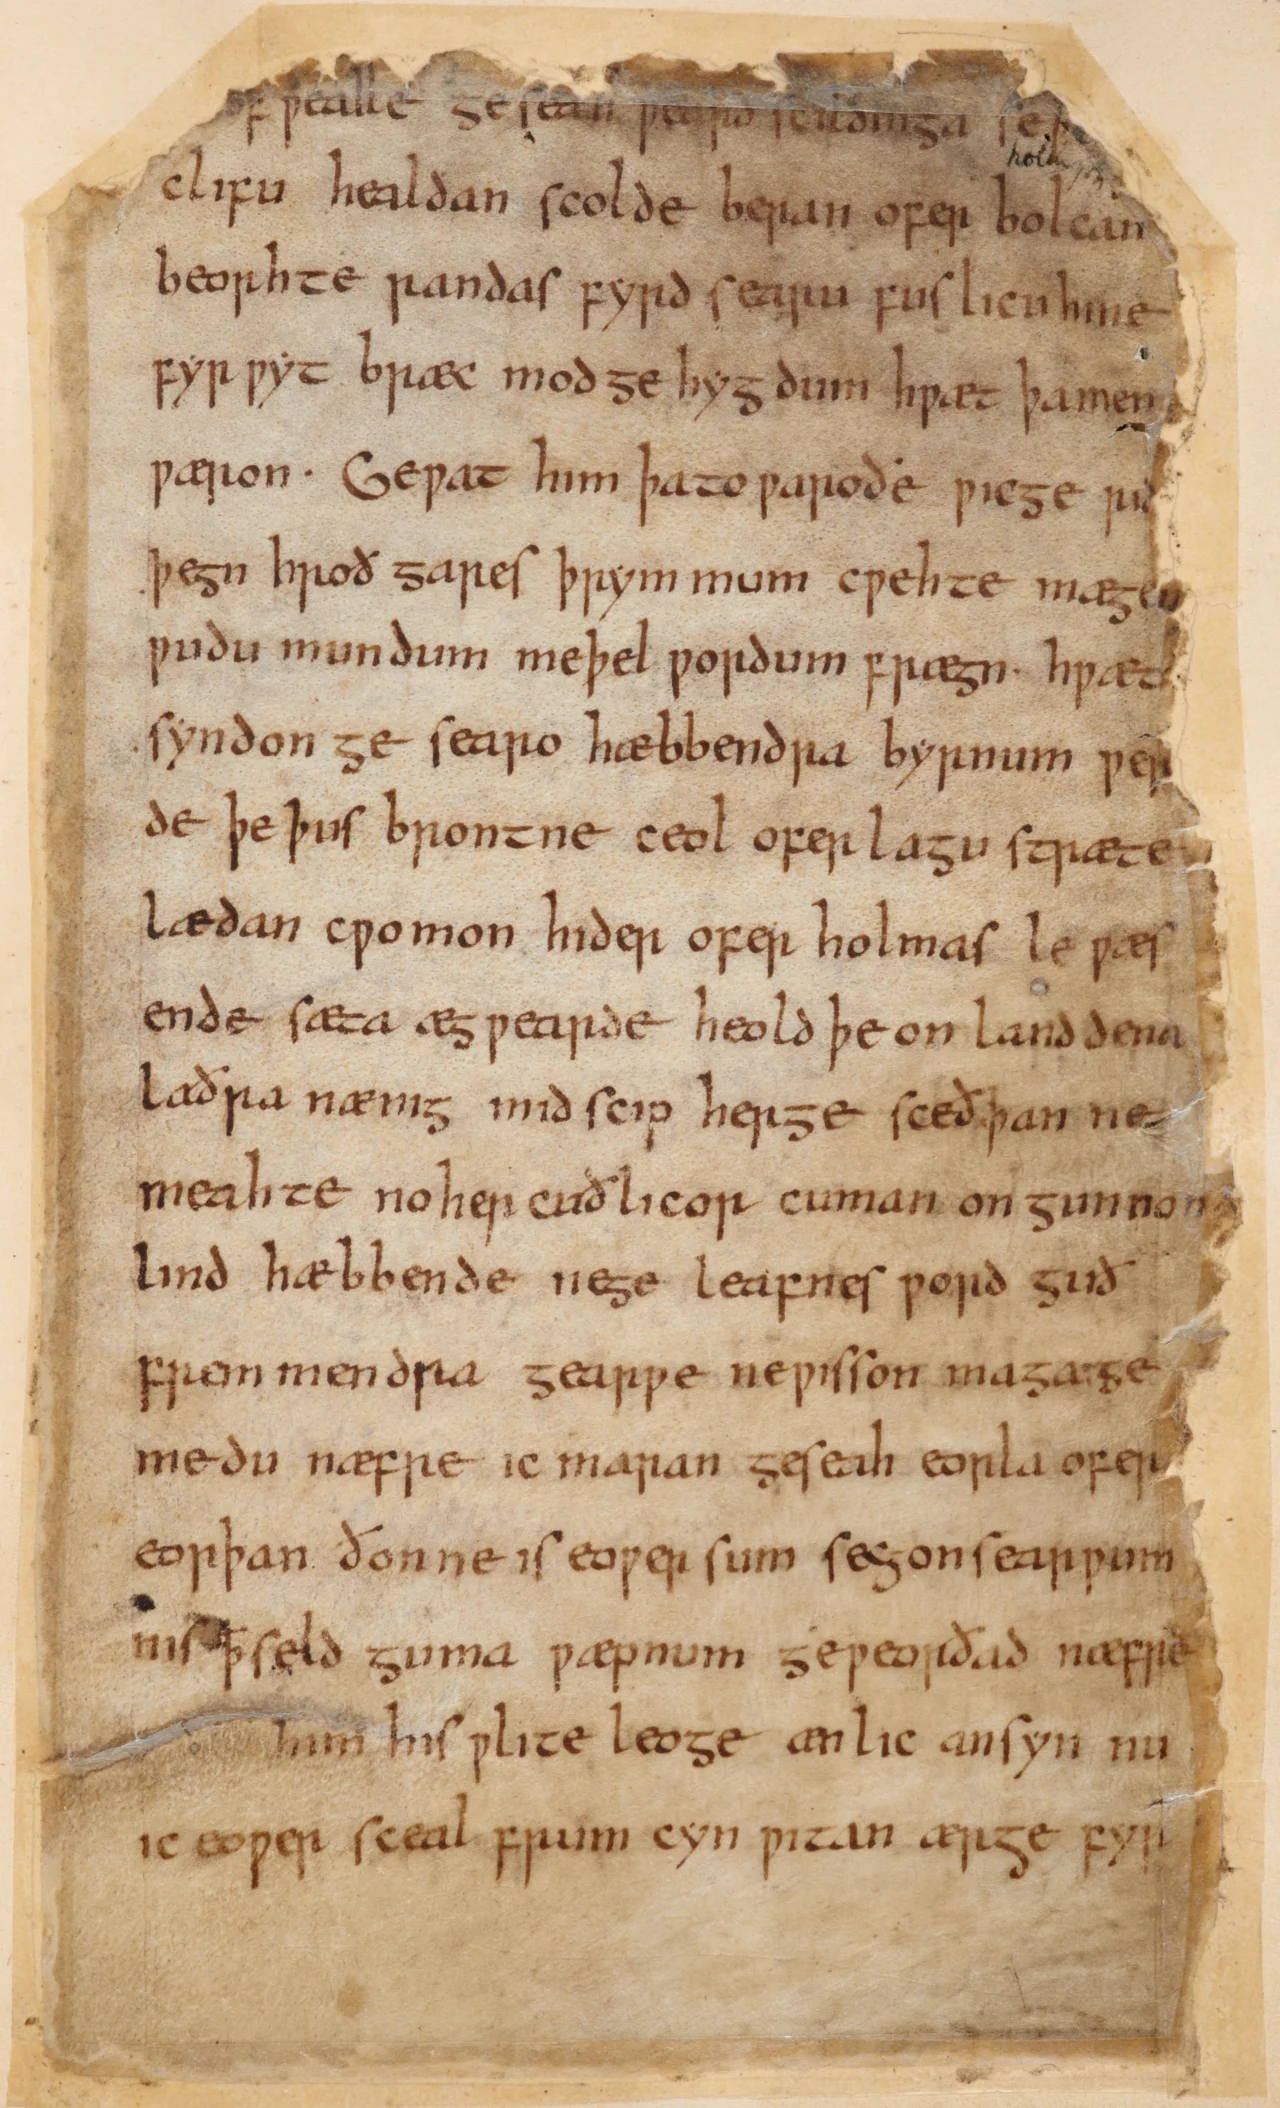 of ƿealle geseah ƿeard scildinga se
holm
clifu healdan scolde beran ofer bolcan
beorhte randas fyrd searu fuslicu hine
fyr ƿyt bræc mod ge hygdum hƿæt þa men
ƿæron · Geƿat him þa to ƿaroðe ƿicge rid
þegn hroð gares þrym mum cƿehte mægen
ƿudu mundum meþel ƿordum frægn · hƿæt
syndon ge searo hæbbendra byrnum ƿer
de þe þus brontne ceol ofer lagu stræte
lædan cƿomon hider ofer holmas le ƿæs
ende sæta æg ƿearde heold þe on land dena
laðra nænig mid scip herge sceðþan ne
meahte no her cuðlicor cuman ongunnon
lind hæbbende ne ge leafnes ƿord guð
fremmendra gearƿe ne ƿisson maga ge
medu næfre ic maran geseah eorla ofer
eorþan ðonne is eoƿer sum secg on searƿum
nis ꝥ seld guma ƿæpnum geƿeorðad næfre
him his ƿlite leoge ænlic ansyn nu
ic eoƿer sceal frum cyn ƿitan ær ge fyr